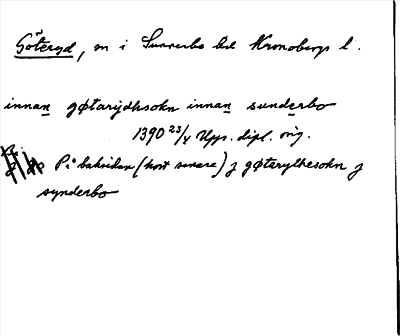 Göteryd, sn i Sunnerbo hd Kronobergs l.
innan gøtarydhsokn innan sunderbo
1390 23/4 Upps. dipl. orig.
På baksidan (kort senare) j gøtarylhesokn j
synderbo